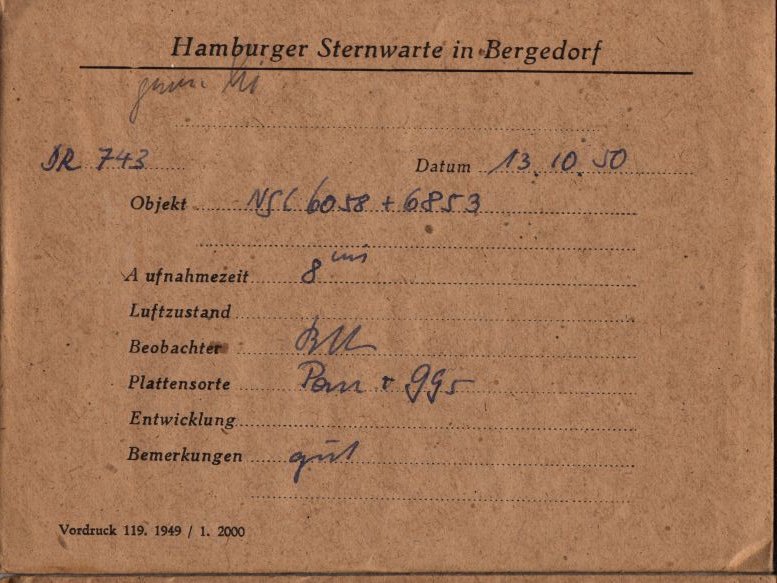 Hamburger Sternwarte in Bergedorf
DR 743 Datum 13.10.50
Objekt NGC 6058 + 6853
Aufnahmezeit 8 min
Luftzustand
Beobachter
Plattensorte Pan + gg5
Entwicklung
Bemerkungen gut
Vordruck 119. 1949 / 1. 2000